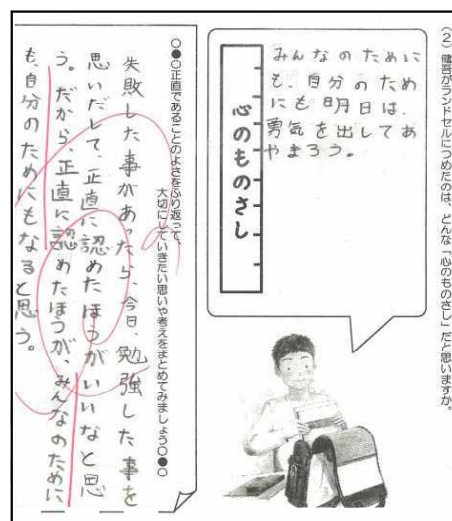 （2）健吾がランドセルにつめたのは、どんな「心のものさし」だと思いますか。
みんなのために
も、自分のため
にも明日は、
勇気を出してあ
やまろう。
心のものさし
○●○正直であることのよさをふり返って、
大切にしていきたい思いや考えをまとめてみましょう○●○
失敗した事があったら、今日、勉強した事を
思いだして、正直に認めたほうがいいなと思
う。だから、正直に認めたほうが、みんなのために
も、自分のためにもなると思う。